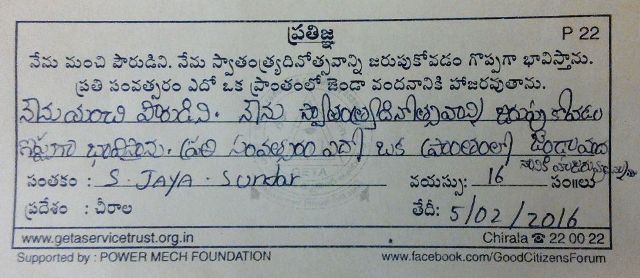 ప్రతిజ్ఞ P 22
నేను మంచి పౌరుడిని. నేను స్వాతంత్ర్యదినోత్సవాన్ని జరుపుకోవడం గొప్పగా భావిస్తాను.
ప్రతి సంవత్సరం ఎదో ఒక ప్రాంతంలో జెండా వందనానికి హాజరవుతాను.
నేను మంచి పౌరుడిని. నేను స్వాతంత్ర్యదినోత్సవాన్ని జరుపుకోవడం
గొప్పగా భావిస్తాను. ప్రతి సంవత్సరం ఎదో ఒక ప్రాంతంలో జెండా వంద
సంతకం : S. JAYA. Sundar వయస్సు: 16 సం॥లు
ప్రదేశం : చీరాల తేదీ: 5/02/2016
www.getaservicetrust.org.in Chirala ☎ 22 00 22
Supported by : POWER MECH FOUNDATION www.facebook.com/GoodCitizensForum